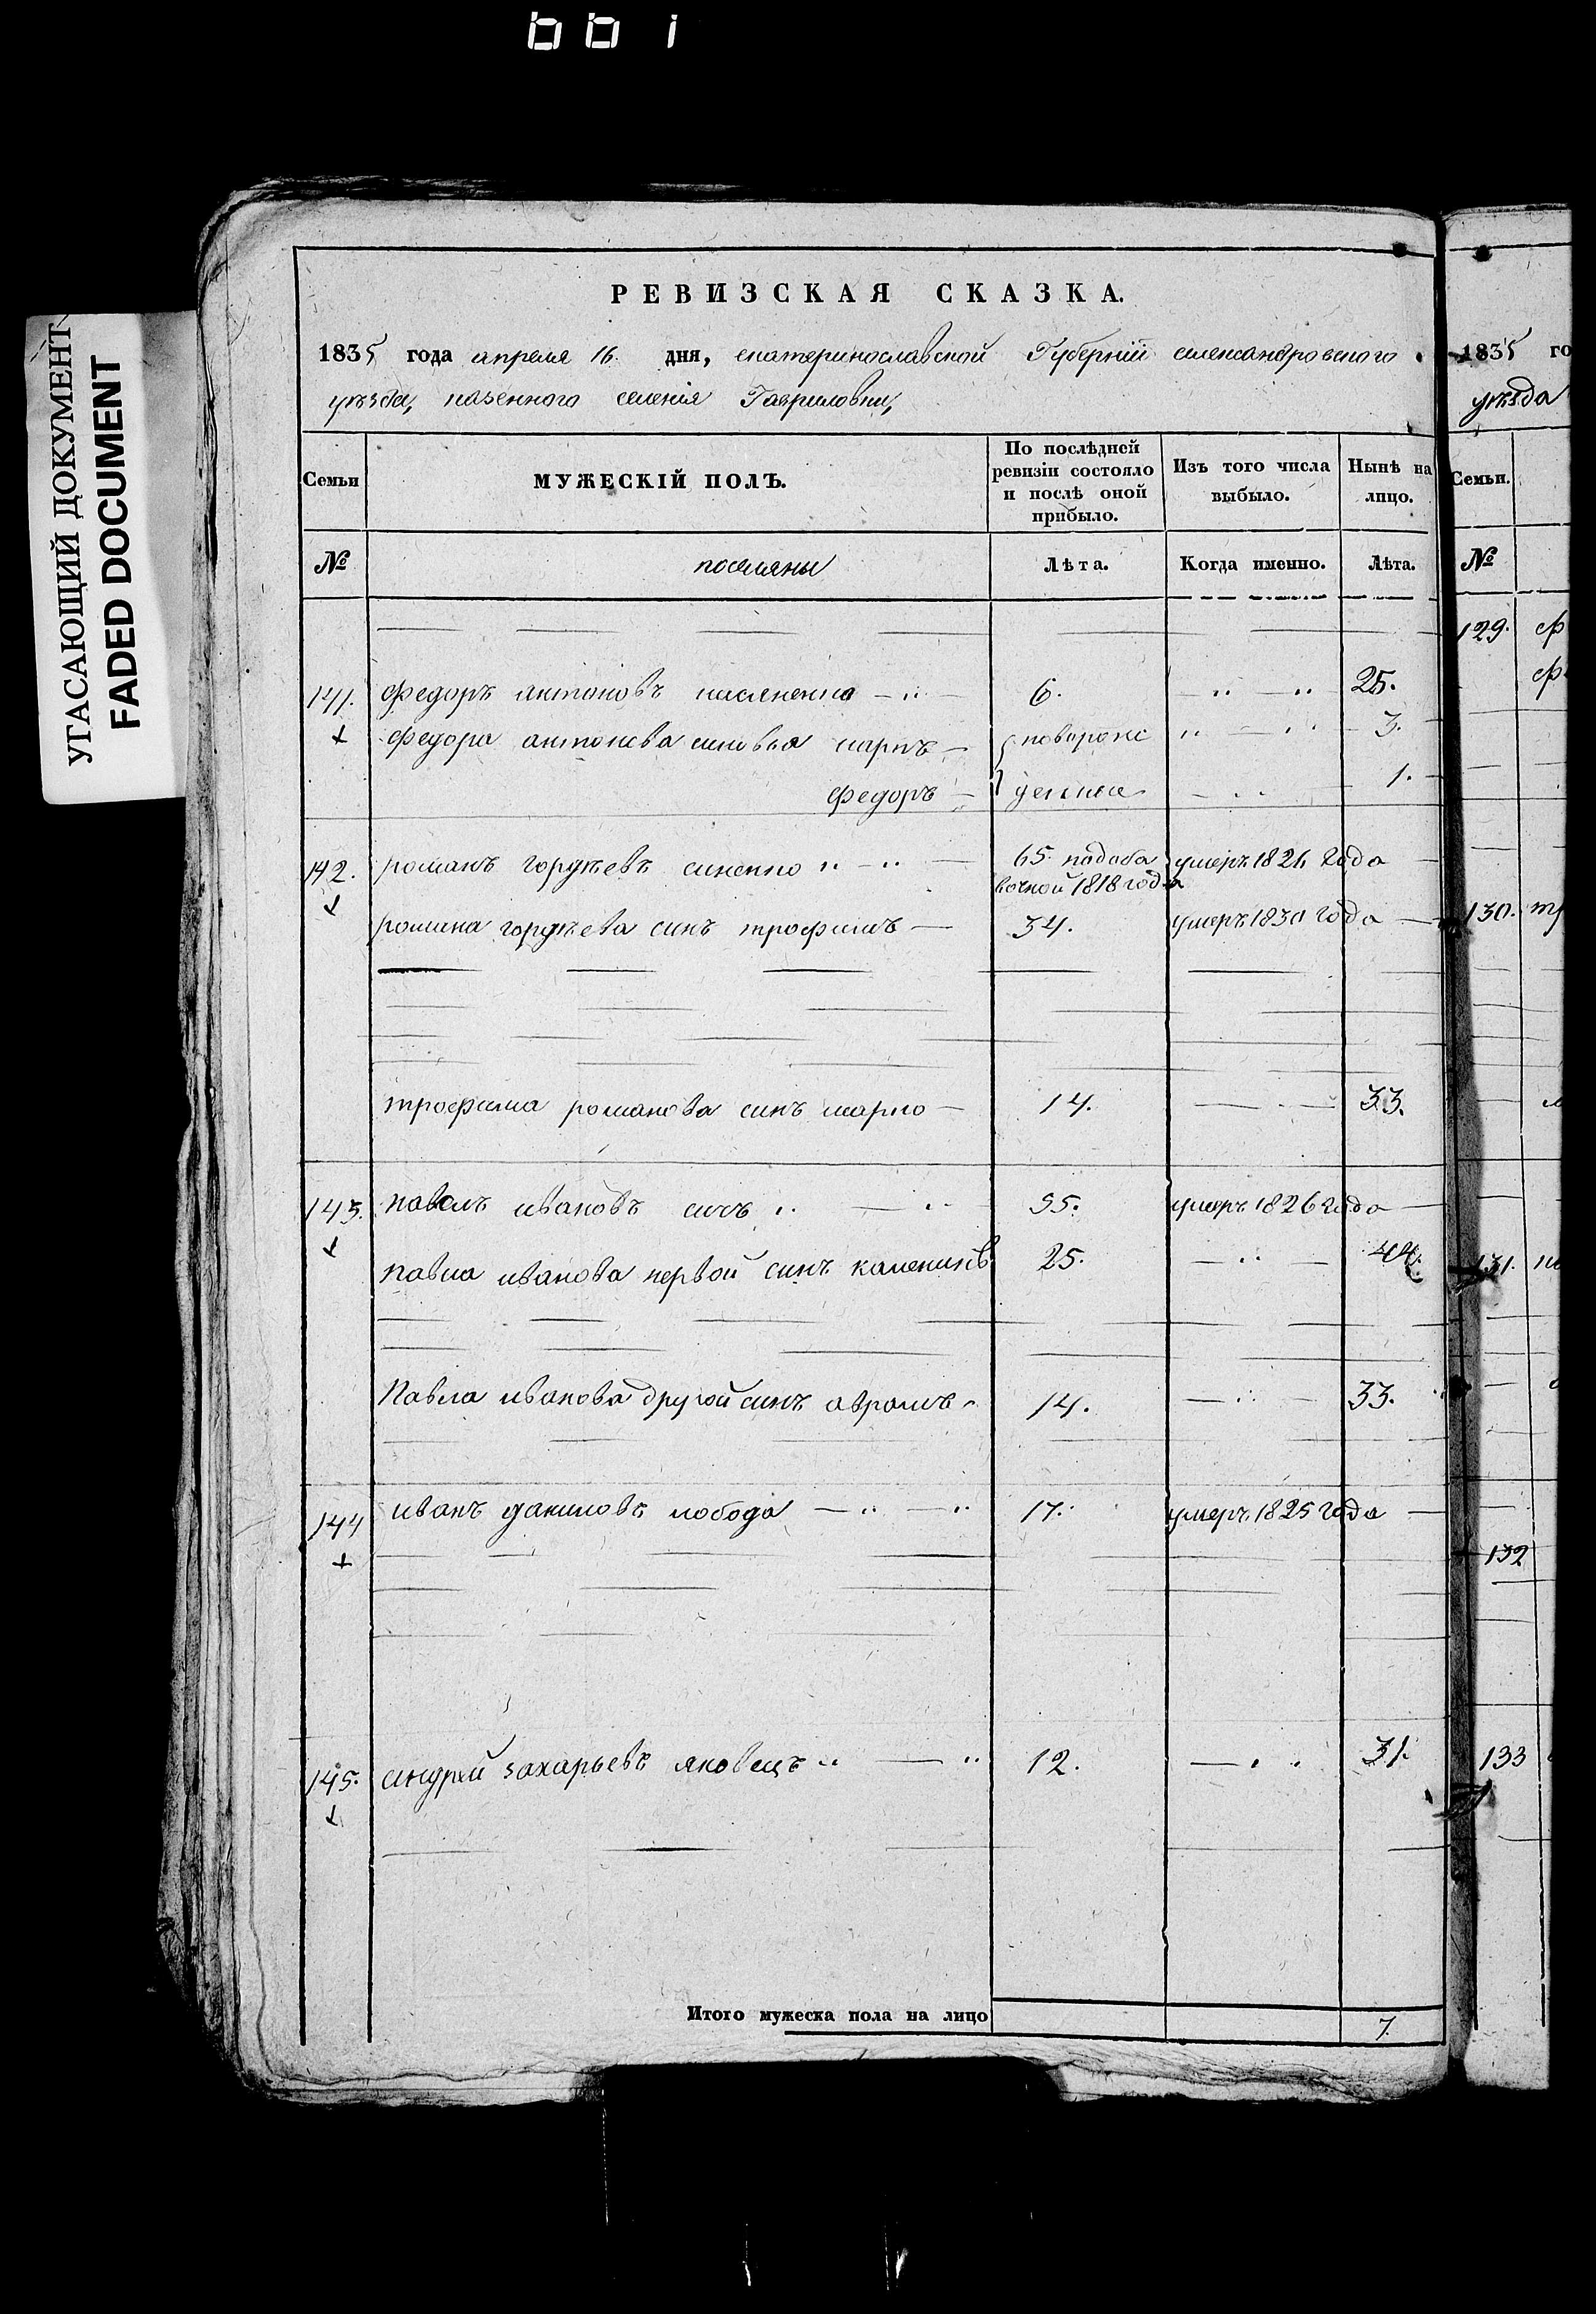 bb i
УГАСАЮЩИЙ ДОКУМЕНТ
FADED DOCUMENT
РЕВИЗСКАЯ СКАЗКА.
1835 года апреля 16. дня, екатеринославской Губернiи александровского
уезда, казенного селенiя Гавриловки,
Семьи МУЖЕСКIЙ ПОЛЪ. По послѣдней ревизiи состояло и послѣ оной прибыло. Изъ того числа выбыло. Нынѣ на лицо.
№ поселяны Лѣта. Когда именно. Лѣта.
141. федоръ антоновъ 6. 25.
федора антонова сыновья карпъ 3.
федоръ 1.
142. романъ синенко 65. умеръ 1826 года
вочной 1818 года
романа сынъ трофимъ 34. умеръ 1830 года
трофима романова сынъ марко 14. 33.
143. павелъ ивановъ 55. умеръ 1826 года
павла иванова первой сынъ 25. 44.
Павла иванова другой сынъ аврамъ 14. 33.
144 иванъ даниловъ лобода 17. умеръ 1825 года
145. андрей захарьевъ яковецъ 12. 31.
Итого мужеска пола на лицо 7.
1835 го
уезда
Семьи.
№
129. ф
130. тр
131.
132
133